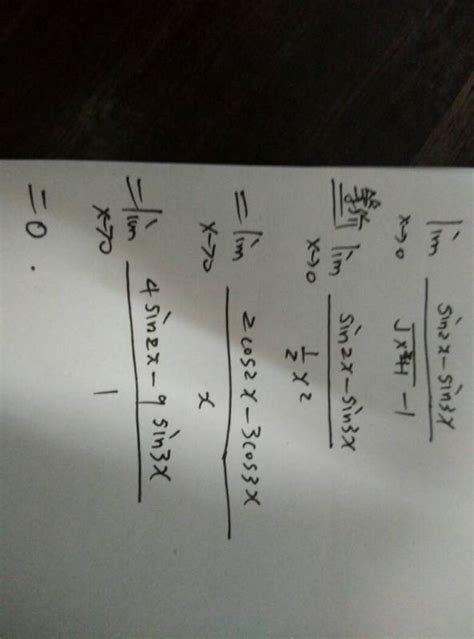 lim x→0 (sin2x - sin3x) / (√(x²+1) - 1)
等价 lim x→0 (sin2x - sin3x) / (½x²)
= lim x→0 (2cos2x - 3cos3x) / x
= lim x→0 (4sin2x - 9sin3x) / 1
= 0.